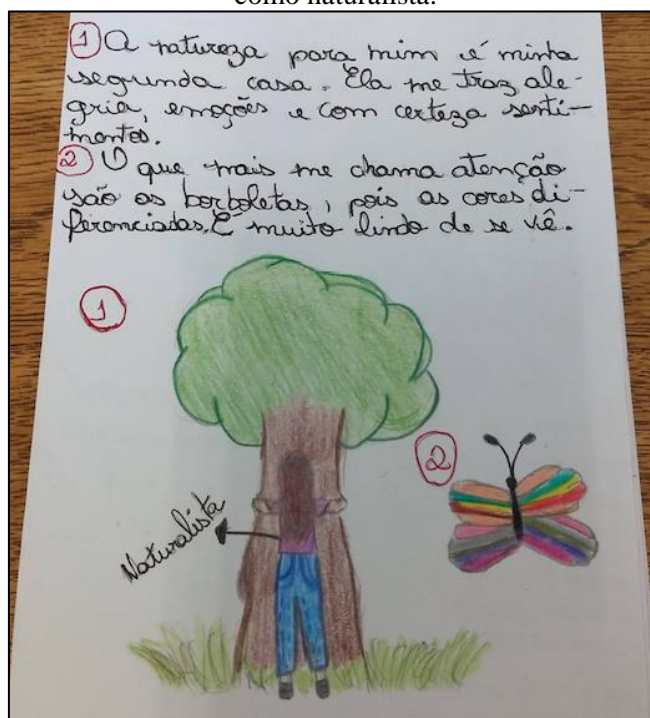 como naturalista.
1 A natureza para mim é minha
segunda casa. Ela me traz ale-
gria, emoções e com certeza senti-
mentos.
2 O que mais me chama atenção
são as borboletas, pois as cores di-
ferenciadas. É muito lindo de se vê.
1
2
Naturalista